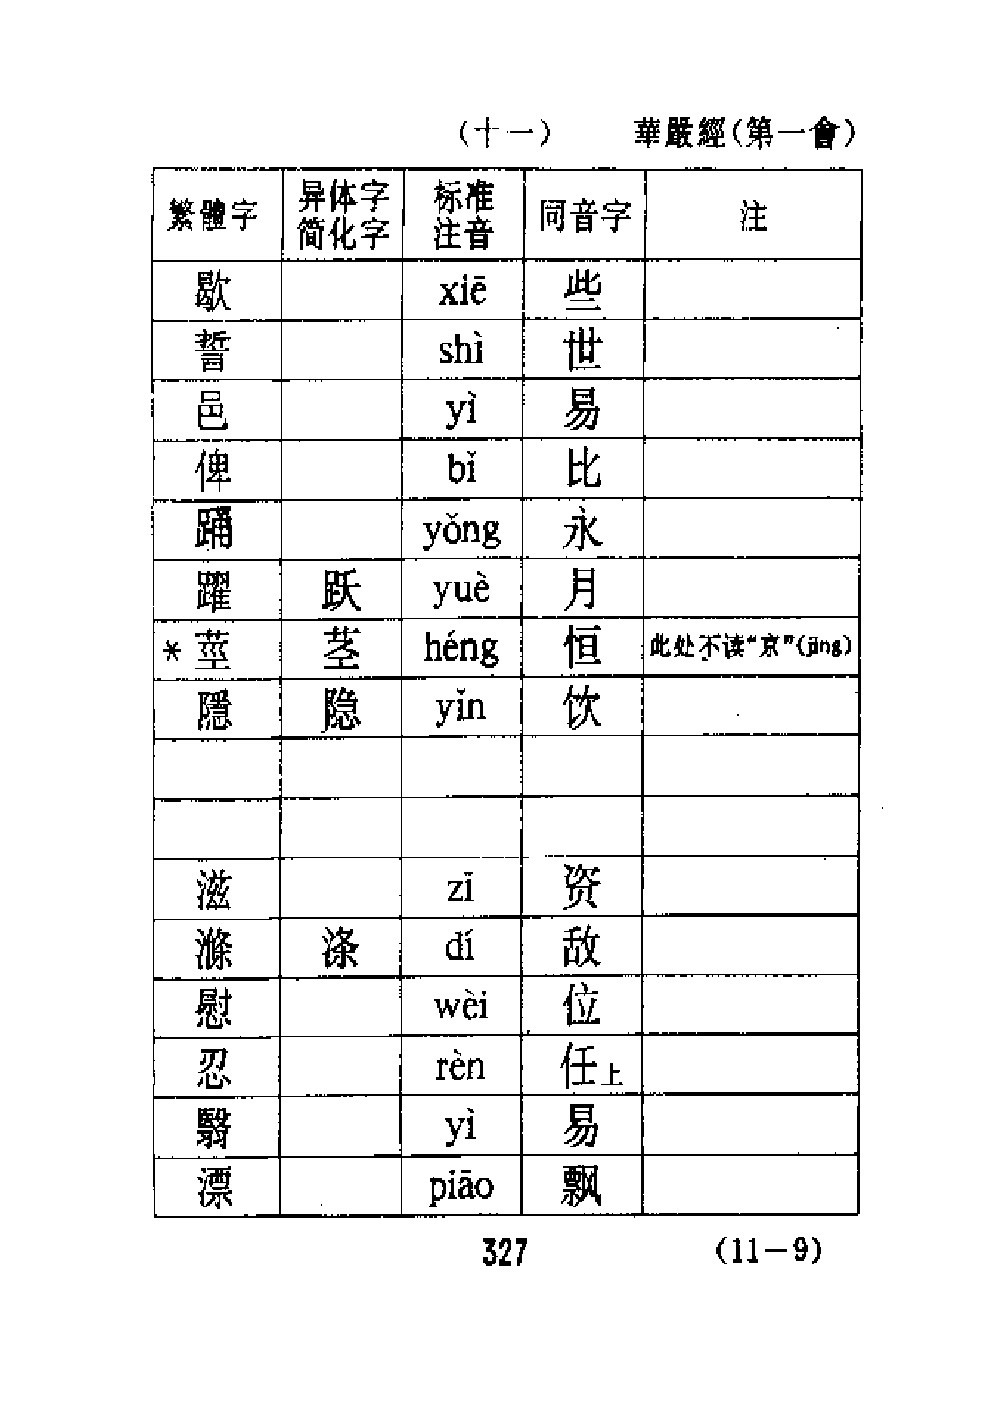 (十一) 華嚴經(第一會)
繁體字 异体字 简化字 标准注音 同音字 注
歇 xiē 些
誓 shì 世
邑 yì 易
俾 bǐ 比
踊 yǒng 永
躍 跃 yuè 月
*莖 茎 héng 恒 此处不读“京”(jīng)
隱 隐 yǐn 饮
滋 zī 资
滌 涤 dí 敌
慰 wèi 位
忍 rèn 任上
翳 yì 易
漂 piāo 飘
327 (11-9)